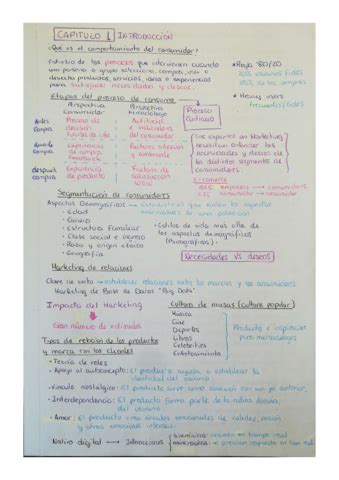 CAPITULO 1 INTRODUCCIÓN
¿Qué es el comportamiento del consumidor?
Estudio de los procesos que intervienen cuando
una persona o grupo selecciona, compra, usa o
desecha productos, servicios, ideas o experiencias
para satisfacer necesidades y deseos.
* Regla 80/20
20% usuarios fieles
* Heavy users
frecuentes/fieles
Etapas del proceso de consumo
Perspectiva Consumidor
Perspectiva Mercadólogo
Proceso Continuo
Antes Compra
Proceso de decisión
Actitudes e indicadores del consumidor
Durante compra
Experiencia de compra
Factores situación y ambiente
después compra
Experiencia de producto
Factores de satisfacción
Los expertos en Marketing
necesitan entender las
necesidades y deseos de
los distintos segmentos de
consumidores
E-commerce
B2C empresas → consumidores
C2C consumidores → consumidores
Segmentación de consumidores
Aspectos Demográficos → estadísticas que miden los aspectos
observables de una población
• Edad
• Género
• Estructura familiar
• Clase social e ingreso
• Raza y origen étnico
• Geografía
• Estilos de vida más allá de
los aspectos demográficos
(Psicografías)
Necesidades VS deseos
Marketing de relaciones
Clave de éxito → establecer relaciones entre las marcas y los consumidores
Marketing de Base de Datos "Big Data"
Impacto del Marketing
Gran número de estímulos
Cultura de masas (cultura popular)
Música
Cine
Deportes
Libros
Celebrities
Entretenimiento
Producto e inspiración
para mercadólogos
Tipos de relación de los productos
y marca con los clientes
• Teoría de roles
• Apoyo al autoconcepto: El producto ayuda a establecer la
identidad del usuario
• Vínculo nostálgico: El producto sirve como conexión con un yo anterior
• Interdependencia: El producto forma parte de la rutina diaria
del usuario
• Amor: El producto crea vínculos emocionales de calidez, pasión
u otras emociones intensas.
Nativo digital → Interacciones